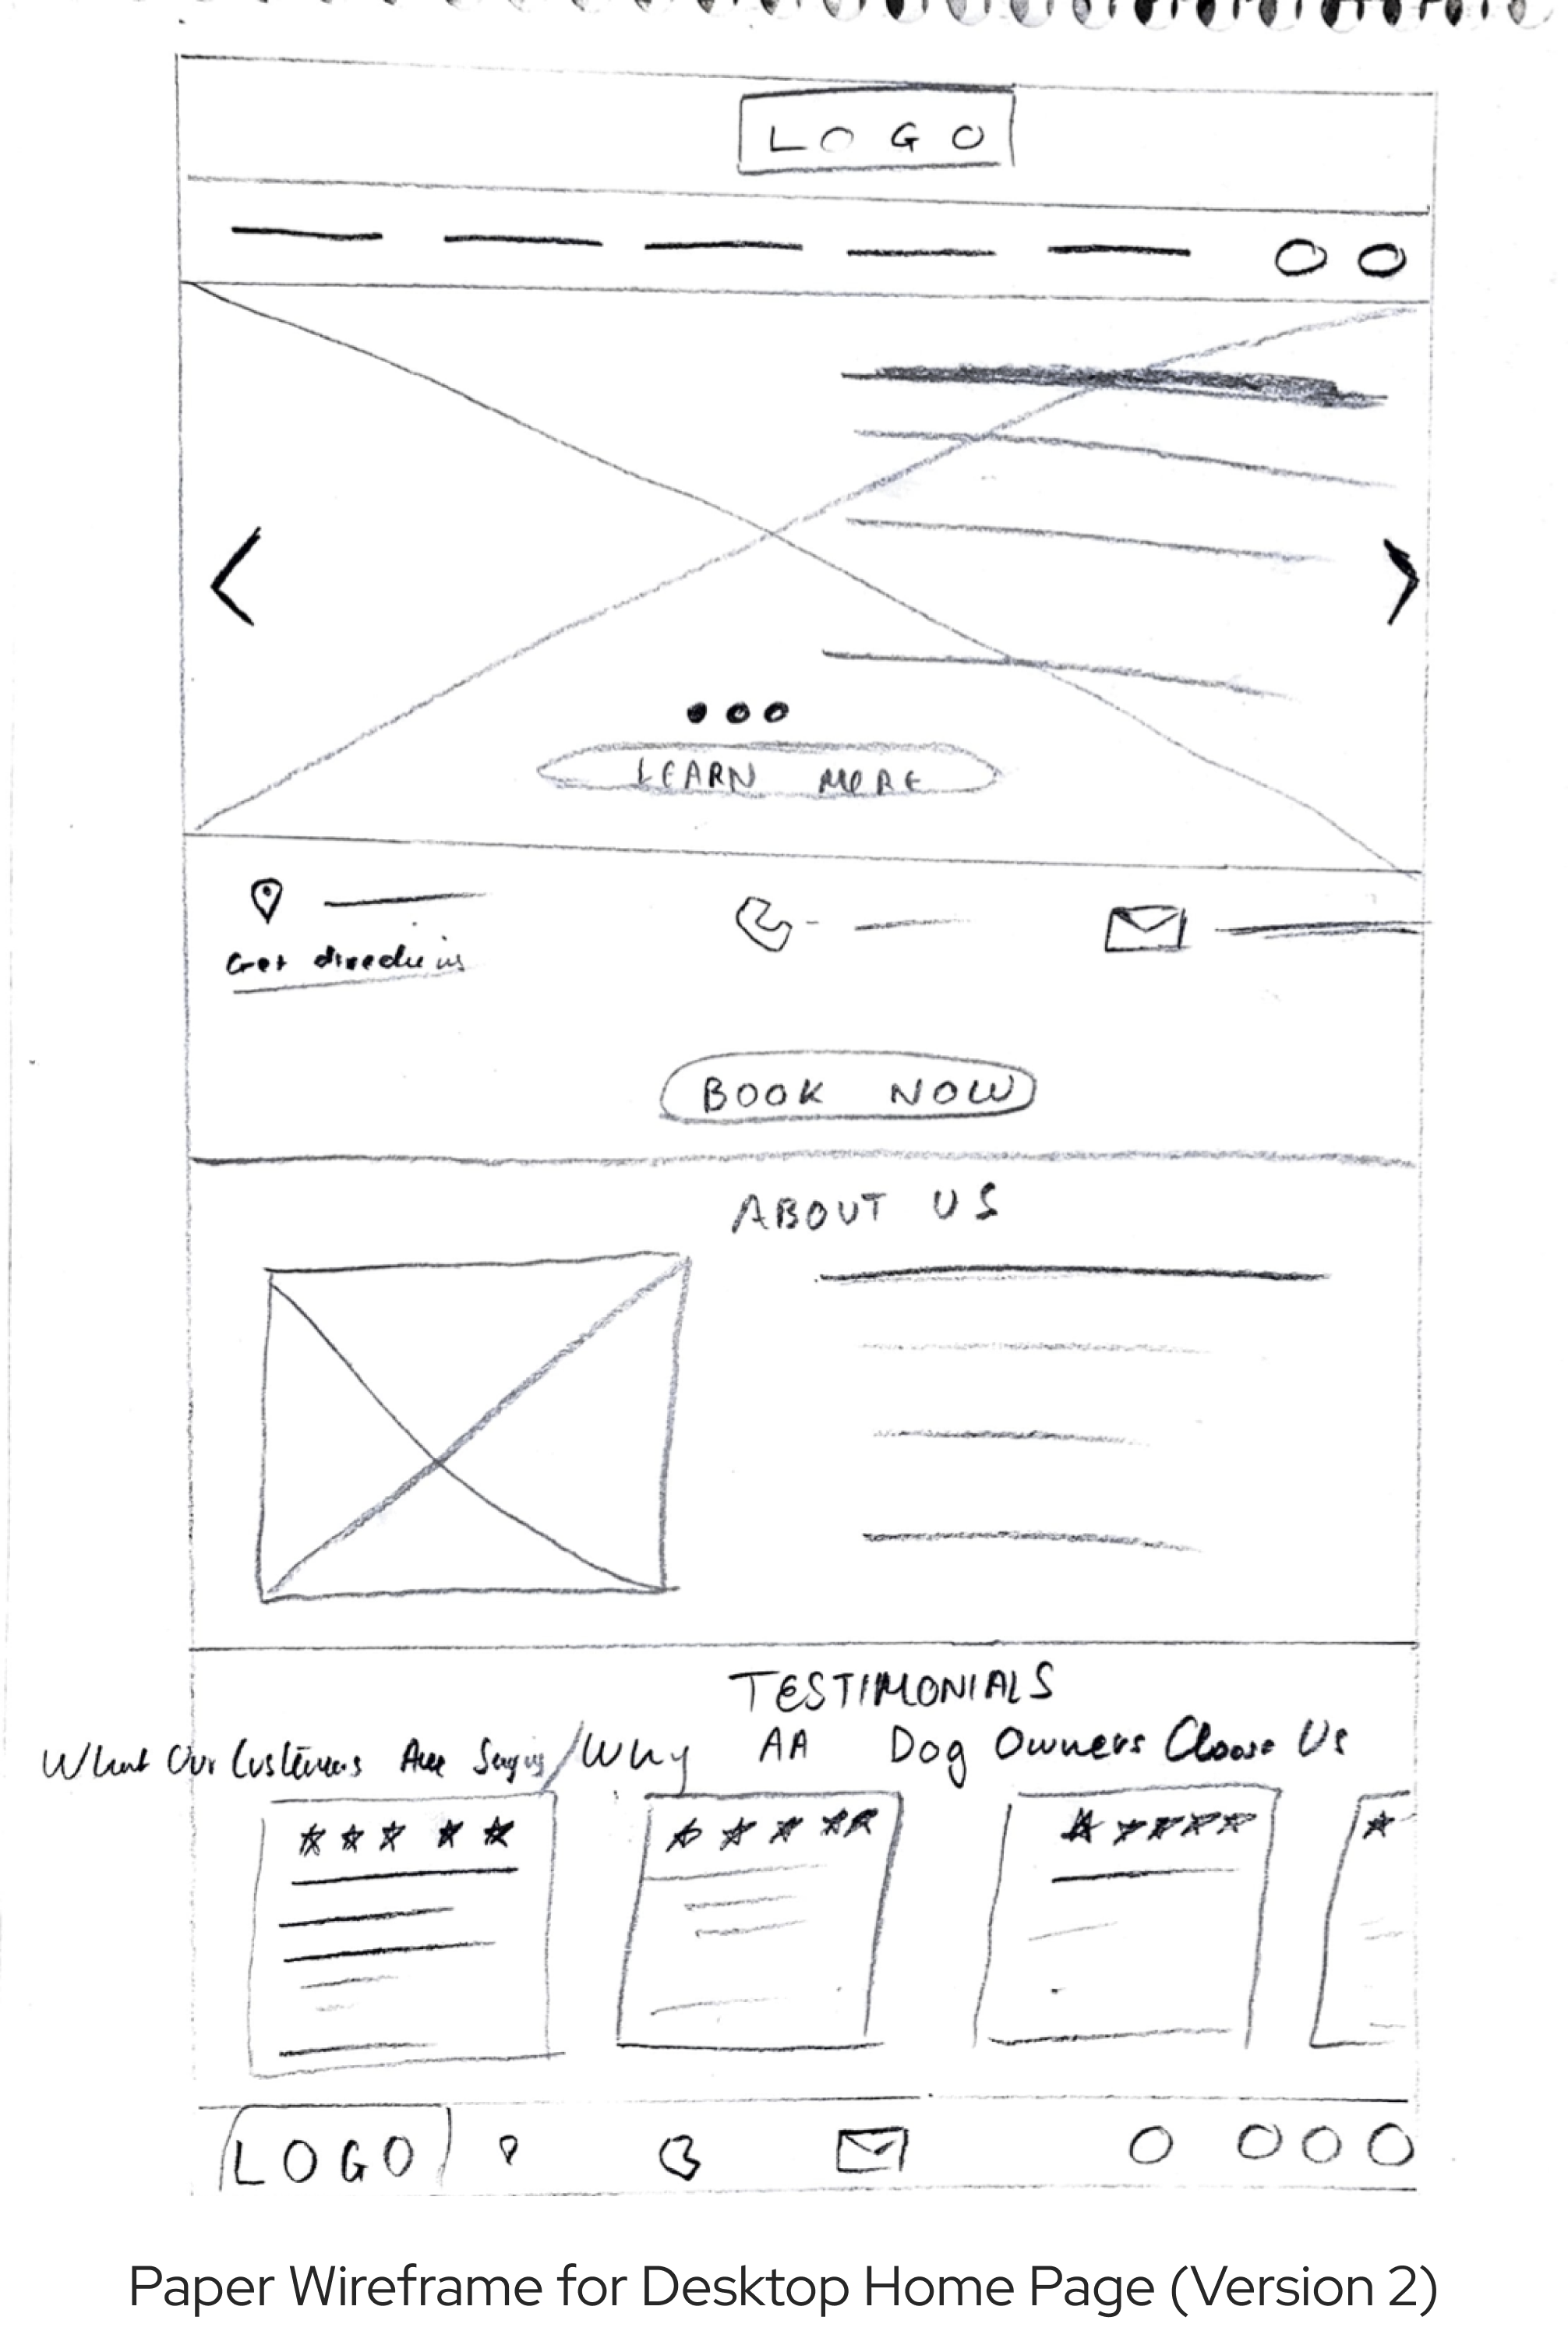 LOGO
LEARN MORE
Get directions
BOOK NOW
ABOUT US
TESTIMONIALS
What Our Customers Are Saying/Why AA Dog Owners Choose Us
LOGO
Paper Wireframe for Desktop Home Page (Version 2)